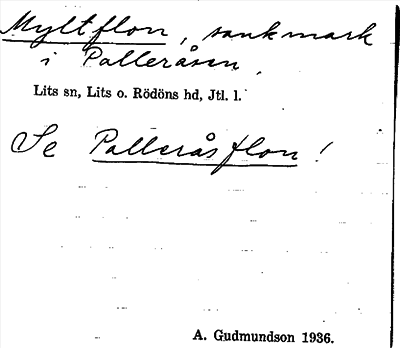 Myltflon, sankmark
i Palleråsen.
Lits sn, Lits o. Rödöns hd, Jtl. l.
Se Palleråsflon!
A. Gudmundson 1936.